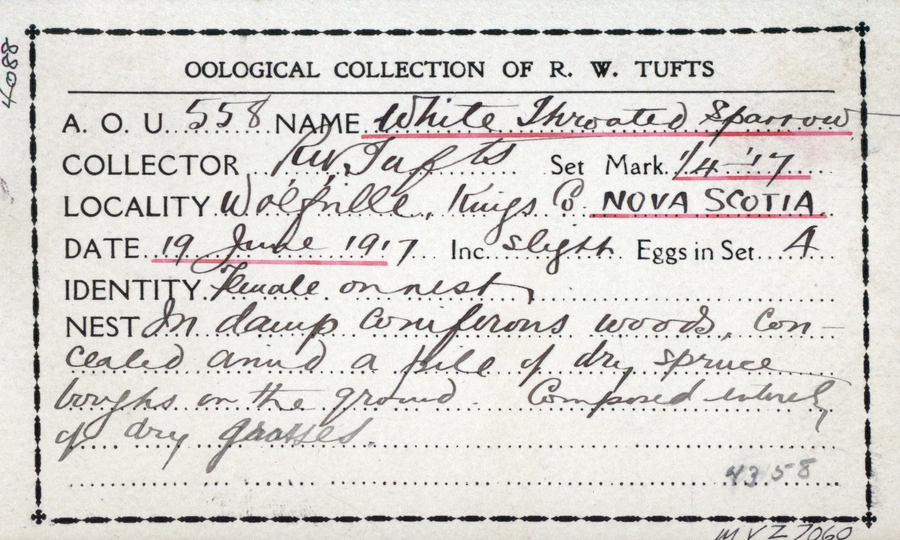 4088
OOLOGICAL COLLECTION OF R. W. TUFTS
A. O. U. 558 NAME White Throated Sparrow
COLLECTOR R.W. Tufts Set Mark 1/4-'17
LOCALITY Wolfville, Kings Co NOVA SCOTIA
DATE 19 June 1917 Inc. slight Eggs in Set 4
IDENTITY Female on nest
NEST In damp coniferous woods, con-
cealed amid a pile of dry spruce
boughs on the ground. Composed entirely
of dry grasses.
4358
MVZ 7060